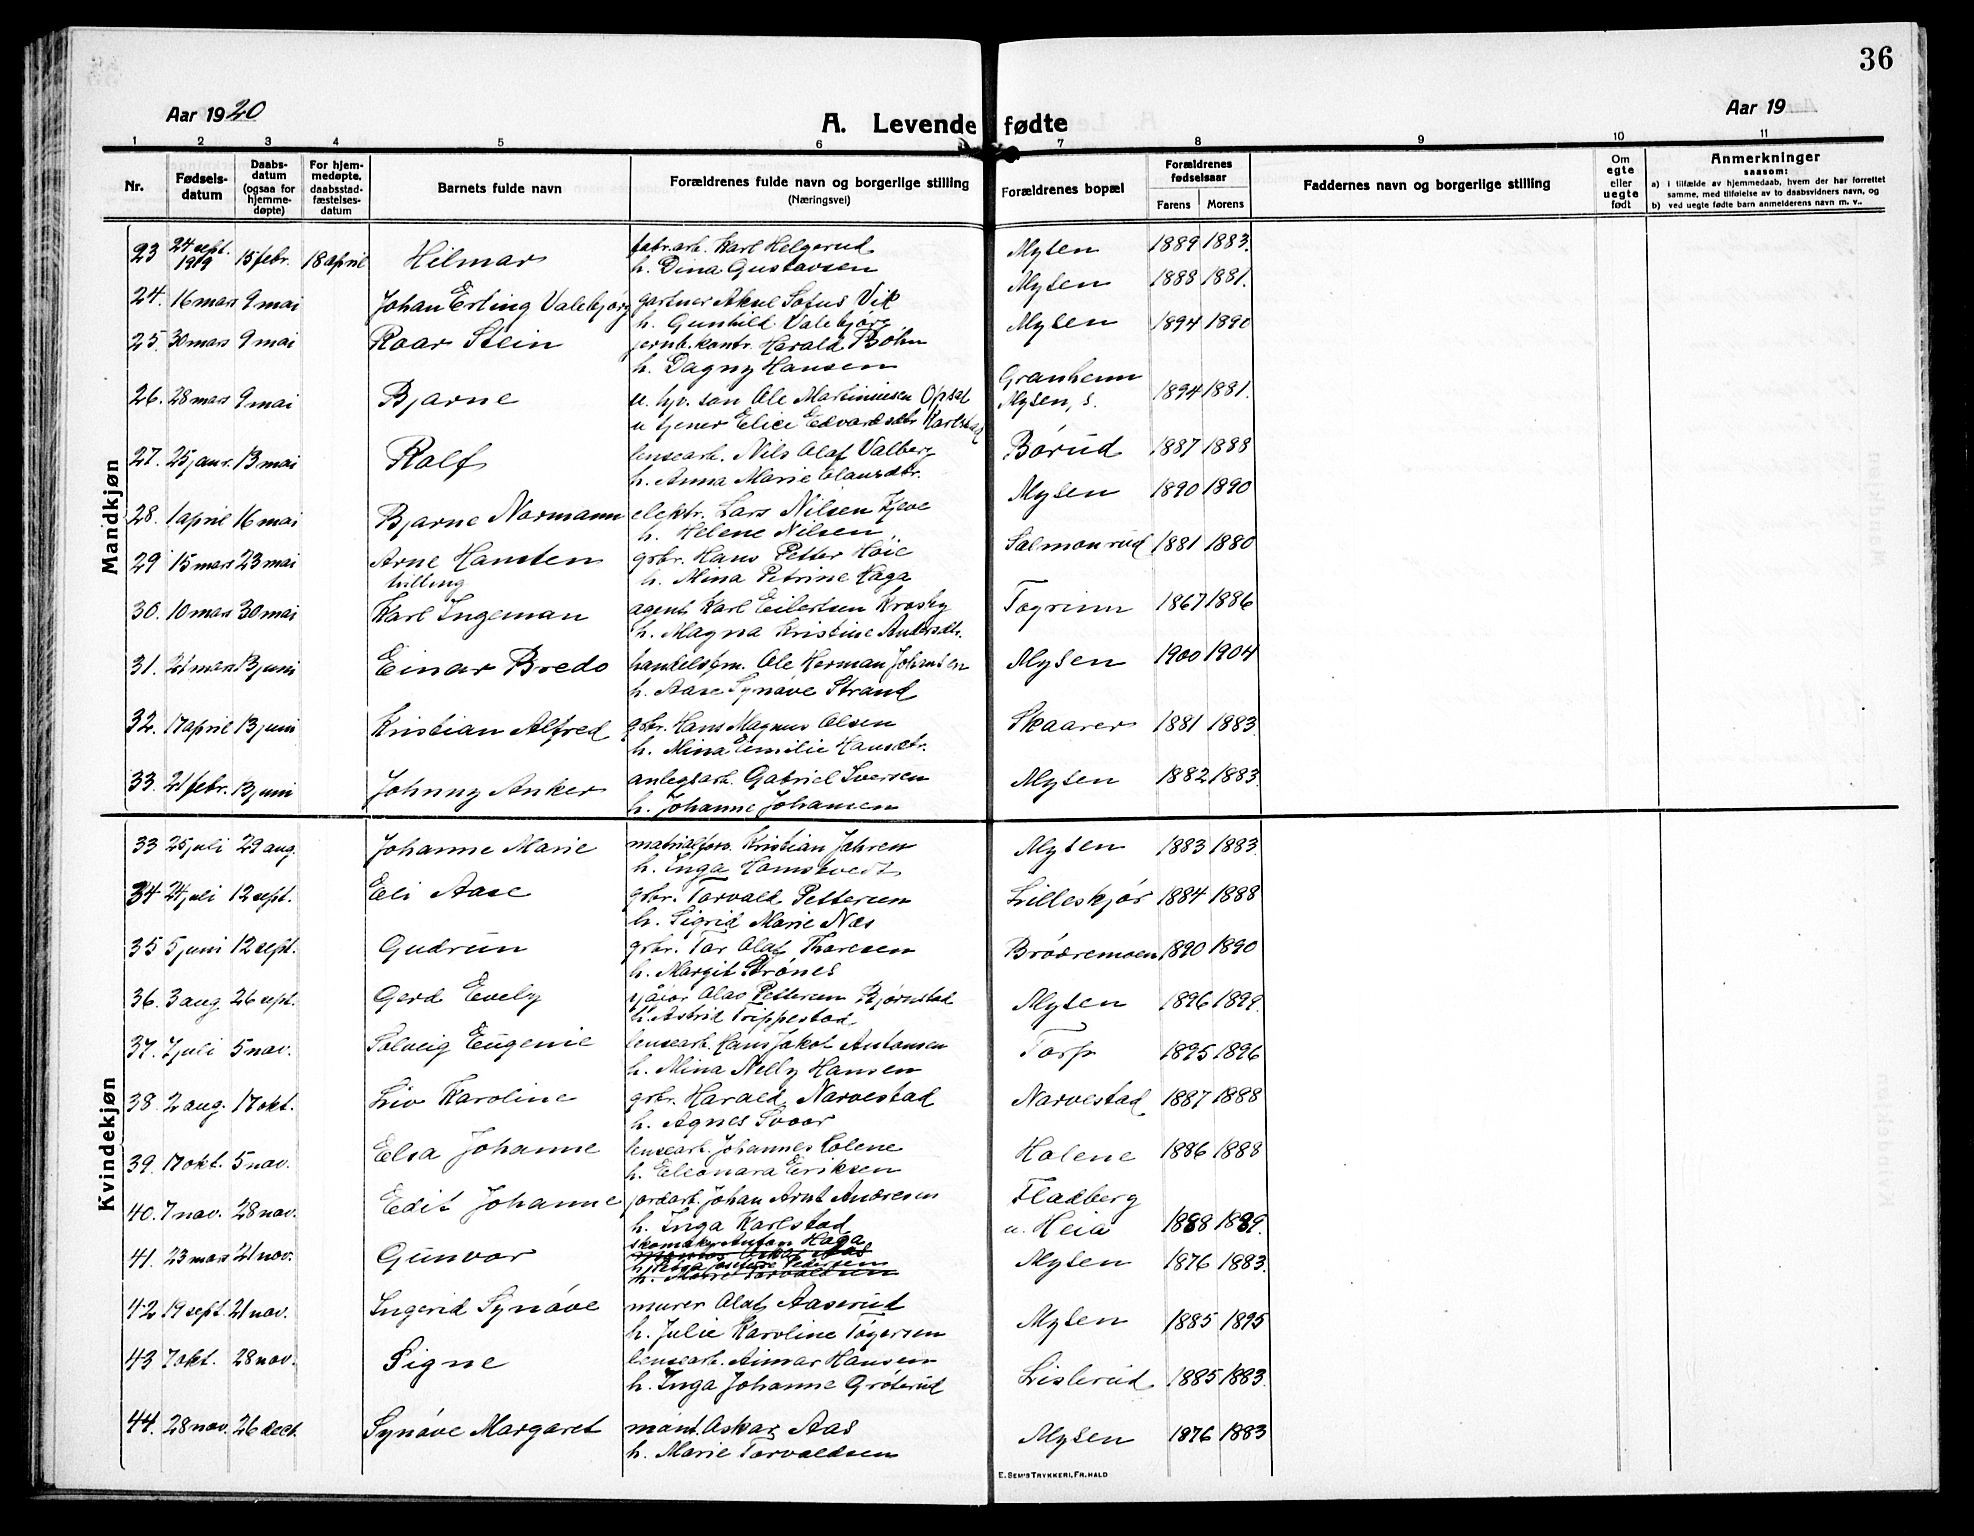 36
Aar 1920
A. Levende fødte
Aar 19
1 2 3 4 5 6 7 8 9 10 11
Nr.
Fødsels-
datum
Daabs-
datum
(ogsaa for
hjemme-
døpte)
For hjem-
medøpte,
daabsstad-
fæstelses-
datum
Barnets fulde navn
Forældrenes fulde navn og borgerlige stilling
(Næringsvei)
Forældrenes bopæl
Forældrenes
fødselsaar
Farens Morens
Faddernes navn og borgerlige stilling
Om
egte
eller
uegte
født
Anmerkninger
saasom:
a) i tilfælde av hjemmedaab, hvem der har forrettet
samme, med tilføielse av to daabsvidners navn, og
b) ved uegte fødte barn anmelderens navn m. v..
Mandkjøn
23 24 sept. 1919 15 febr. 18 april Hilmar fabr.arb. Karl Helgerud Mysen 1889 1883.
h. Dina Gustavsen
24. 16 mars 9 mai Johan Erling Valebjørg gartner Aksel Sotus Vik Mysen 1888 1881.
h. Gunhild Valebjørg
25. 30 mars 9 mai Roar Stein jernb.kontr. Harald Bøhn Mysen 1894 1890
h. Dagny Hansen
26. 28 mars 9 mai Bjarne u. hjv. søn Ole Martiniusen Opsal Granheim
Mysen, s. 1894 1881.
u tjener Elise Edvardsdtr Karlstad
27. 25 janr. 13 mai Rolf lensearb. Nils Olaf Valberg Børud 1887 1888
h. Anna Marie Olausdtr.
28. 1 april 16 mai Bjarne Normann elektr. Lars Nilsen Kjeve Mysen 1890 1890
h. Helene Nilsen
29 15 mars 23 mai Arne Hansten gbr. Hans Petter Høie Salmonrud 1881 1880
tvilling h. Mina Petrine Haga
30. 10 mars 30 mai Karl Ingeman agent Karl Eilertsen Krosby Togrinn 1867 1886
h. Magna Kristine Andersdtr.
31. 21 mars 13 juni Einar Bredo handelsfm. Ole Herman Johansen Mysen 1900 1904
h. Aase Synøve Strand
32. 17 april 13 juni Kristian Alfred gbr. Hans Magnus Olsen Skaarer 1881 1883.
h. Mina Emilie Hansdtr.
33. 21 febr. 13 juni Johnny Anker anlegsarb. Gabriel Iversen Mysen 1882 1883.
h. Johanne Johansen
Kvindekjøn
33 25 juli 29 aug. Johanne Marie matrialforv. Kristian Jahren Mysen 1883 1883.
h. Inga Homstvedt
34 24 juli 12 sept. Eli Aase gbr. Torvald Pettersen Lilleskjør 1884 1888
h. Sigrid Marie Næs
35 5 juni 12 sept. Gudrun gbr. Tor Olaf Thoresen Brødremoen 1890 1890
h. Margit Strønes
36. 3 aug. 26 sept. Gerd Evely Olav Pettersen Bjørnstad Mysen 1896 1899.
h. Astrid Trippestad
37. 7 juli 5 nov. Solveig Eugenie lensearb. Hans Jakob Antonsen Torp 1895 1896
h. Mina Nelly Hansen
38. 2 aug. 17 okt. Liv Karoline gbr. Harald Narvestad Narvestad 1887 1888
h. Agnes Svoor
39. 17 okt. 5 nov. Elsa Johanne lensearb. Johannes Holene Holene 1886 1888
h. Eleonara Eriksen
40. 7 nov. 28 nov. Edit Johanne jordarb. Johan Arnt Andresen Fladberg
h. Inga Karlstad u. Heia 1888 1889.
41. 23 mars 21 nov. Gunvor skomaker Anton Haga Mysen 1876 1883.
montør Oskar Aas
h. Josefine Pedersen
h. Marie Torvaldsen
42 19 sept. 21 nov. Ingerid Synøve murer Olaf Aaserud Mysen 1885 1895
h. Julie Karoline Tøgersen
43 7 okt. 28 nov. Signe lensearb. Aimar Hansen Lislerud 1885 1883.
h. Inga Johanne Grøterud
44. 28 nov. 26 dect. Synøve Margaret mont. Oskar Aas Mysen 1876 1883
h. Marie Torvaldsen
E. Sem's Trykkeri, Fr.hald